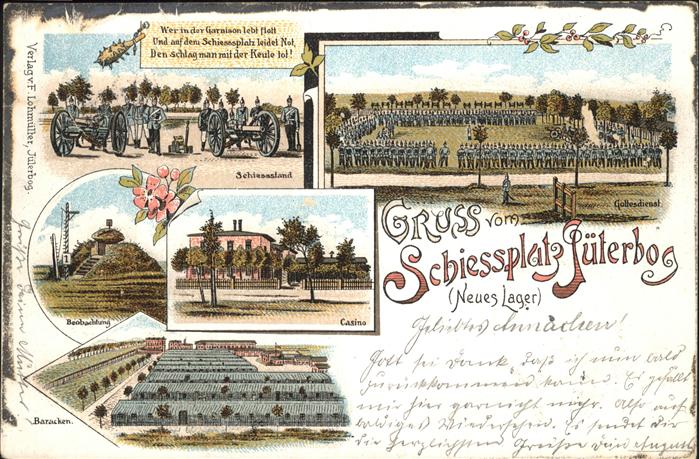 Wer in der Garnison lebt flott
Und auf dem Schiessplatz leidet Not,
Den schlag man mit der Keule tot!
Verlag v. F. Lohmüller, Jüterbog.
Schiessstand
Gottesdienst
Gruss vom
Schiessplatz Jüterbog
(Neues Lager)
Beobachtung
Casino
Baracken.
Geliebtes Annachen!
Gott sei Dank, daß ich nun bald
zurückkommen kann. Es gefällt
mir hier garnicht mehr. Also auf
baldiges Wiedersehen. Es sendet dir
die herzlichsten Grüße dein August